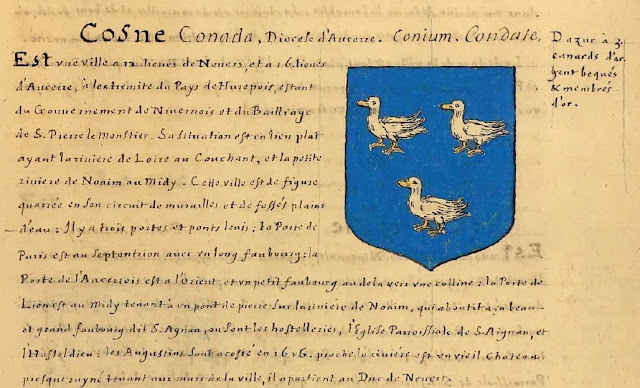 Cosne Conada, Diocese d'Auceire. Conium. Condate.
D'azur à 3.
canards d'ar
gent bequés
& membrés
d'or.
Est vne ville a 12 lieües de Nevers, et à 16 lieües
d'Auceire, à lextremité du Pays de Hurepois, estant
du Gouvernement de Nivernois et du Bailliage
de S. Pierre le Monstier. Sa situation est en lieu plat
ayant la riviere de Loire au Couchant, et la petite
riviere de Noaim au Midy. Cette ville est de figure
quarrée en son circuit de murailles et de fossés plains
d'eau: Il y a trois portes et ponts levis: la Porte de
Paris est au septentrion avec vn long faubourg: la
Porte de l'Aucerrois est a l'Orient, et vn petit faubourg au dela vers vne colline: la Porte de
Lion est au Midy tenant à vn pont de pierre sur la riviere de Noaim, qui aboutit a vn beau
et grand faubourg dit S. Agnan, ou sont les hostelleries, l'Eglise Parroissiale de S. Aignan, et
l'Hosteldieu: les Augustins sont a costé en 1616. proche la riviere est vn vieil Chateau
presque ruyné tenant aux murs de la ville, il apartient au Duc de Nevers.